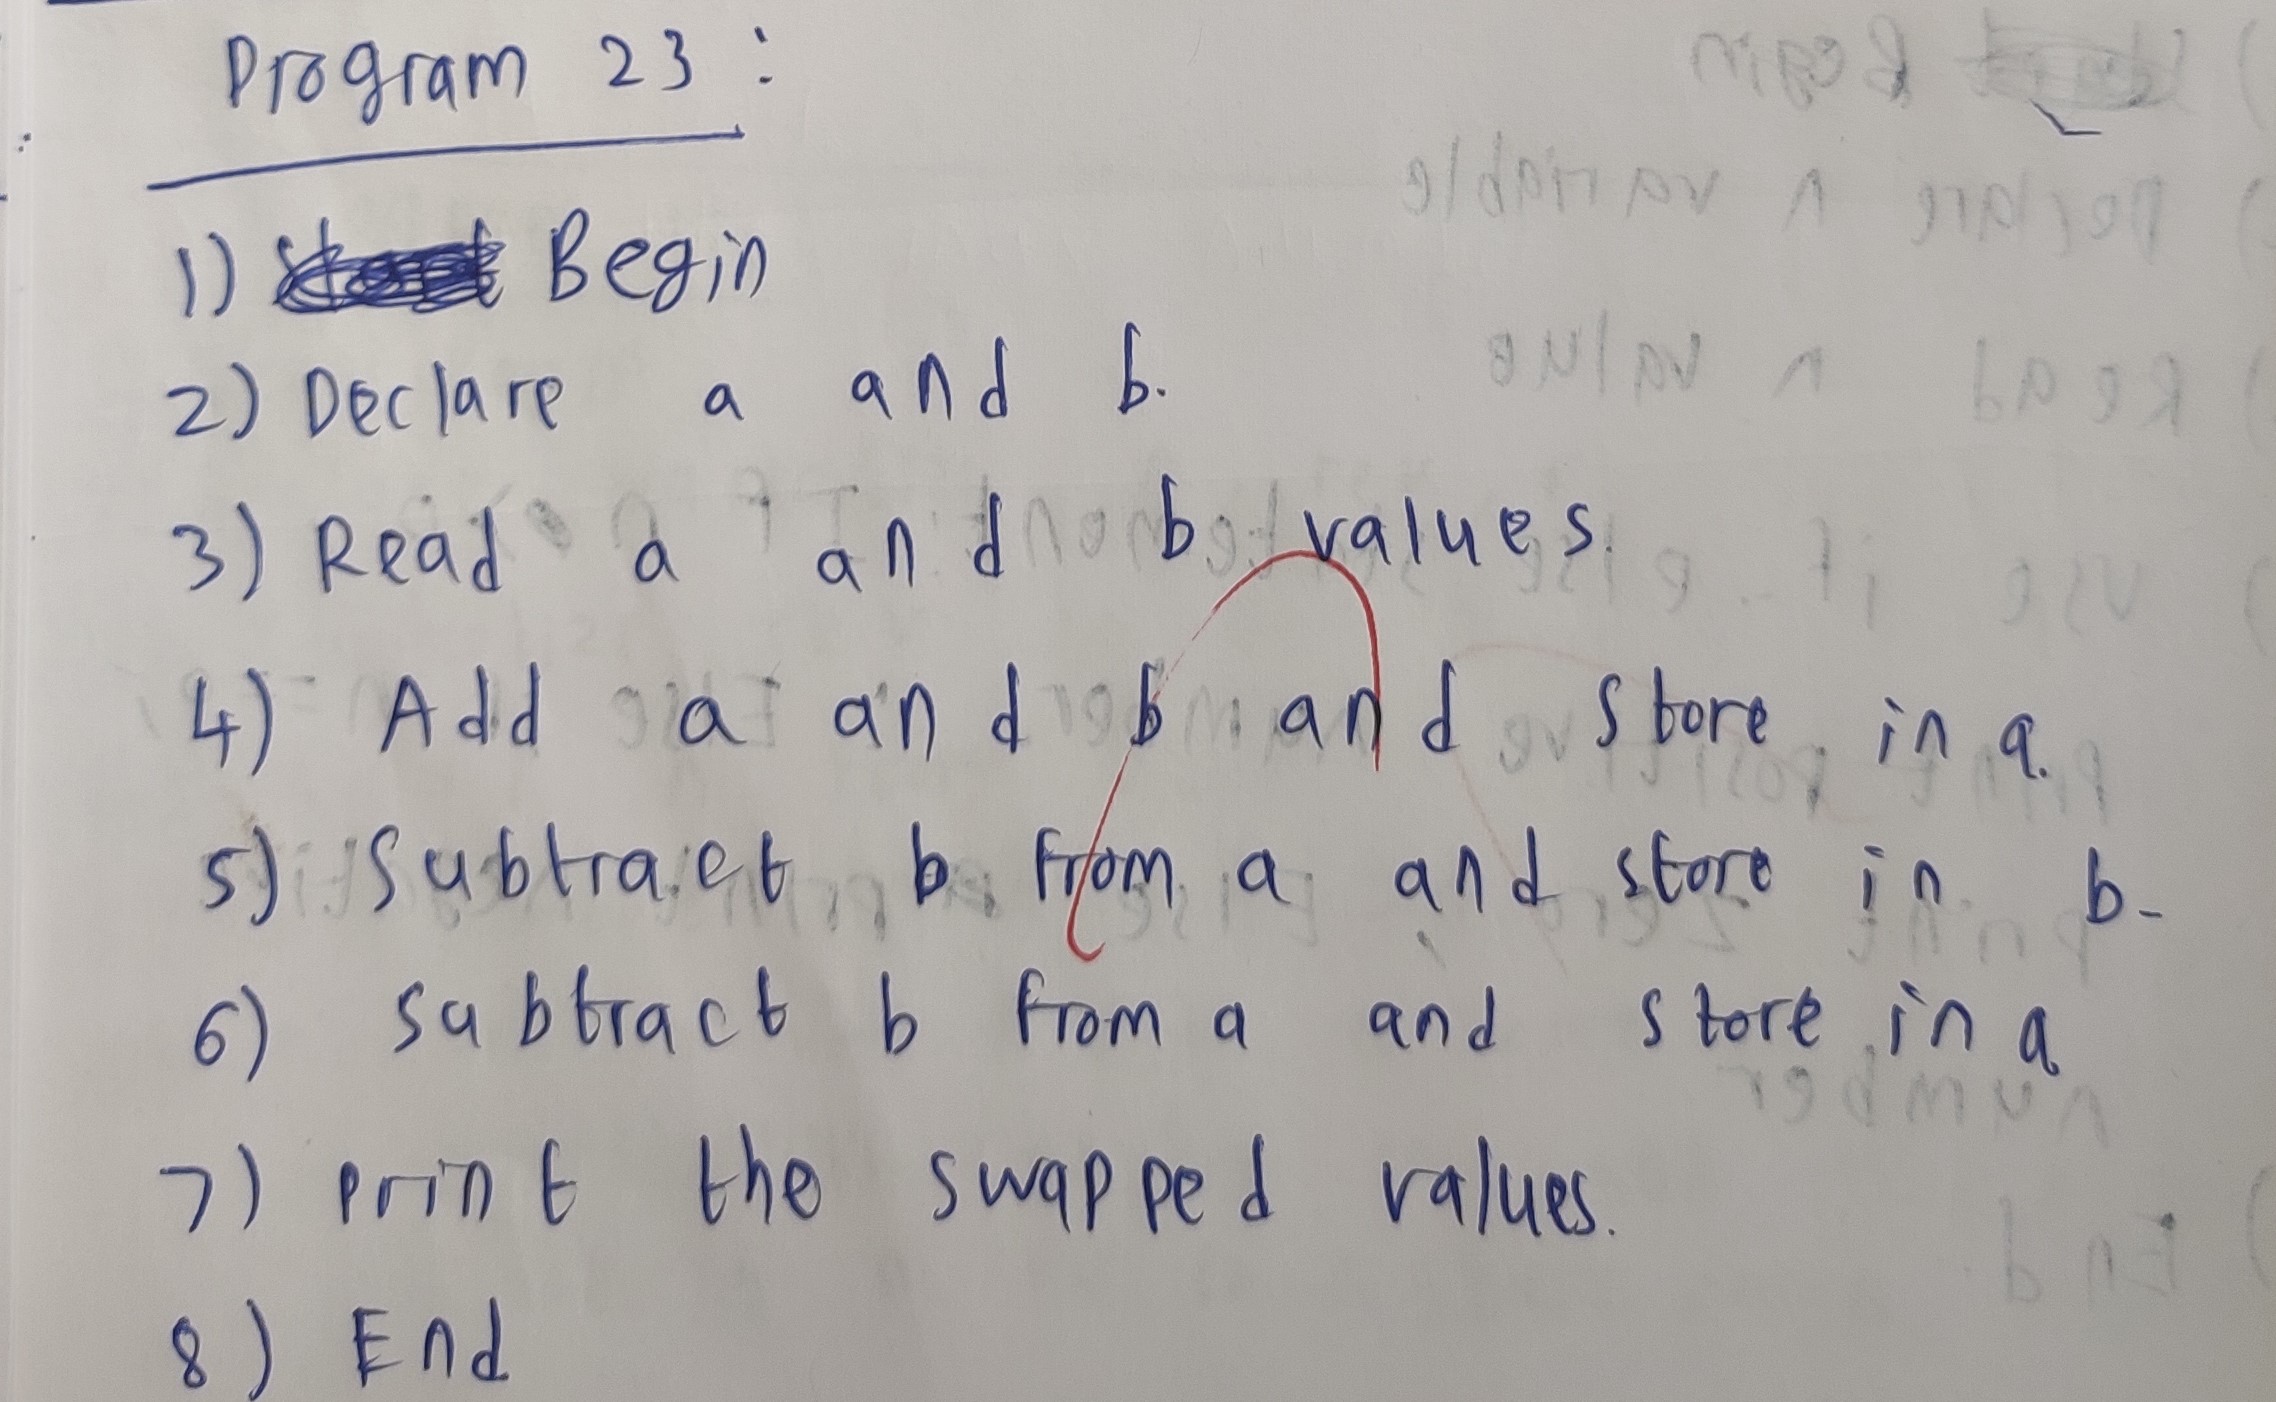 Program 23 :
1) Begin
2) Declare a and b.
3) Read a and b values.
4) Add a and b and store in a.
5) Subtract b from a and store in b.
6) subtract b from a and store in a
7) print the swapped values.
8) End